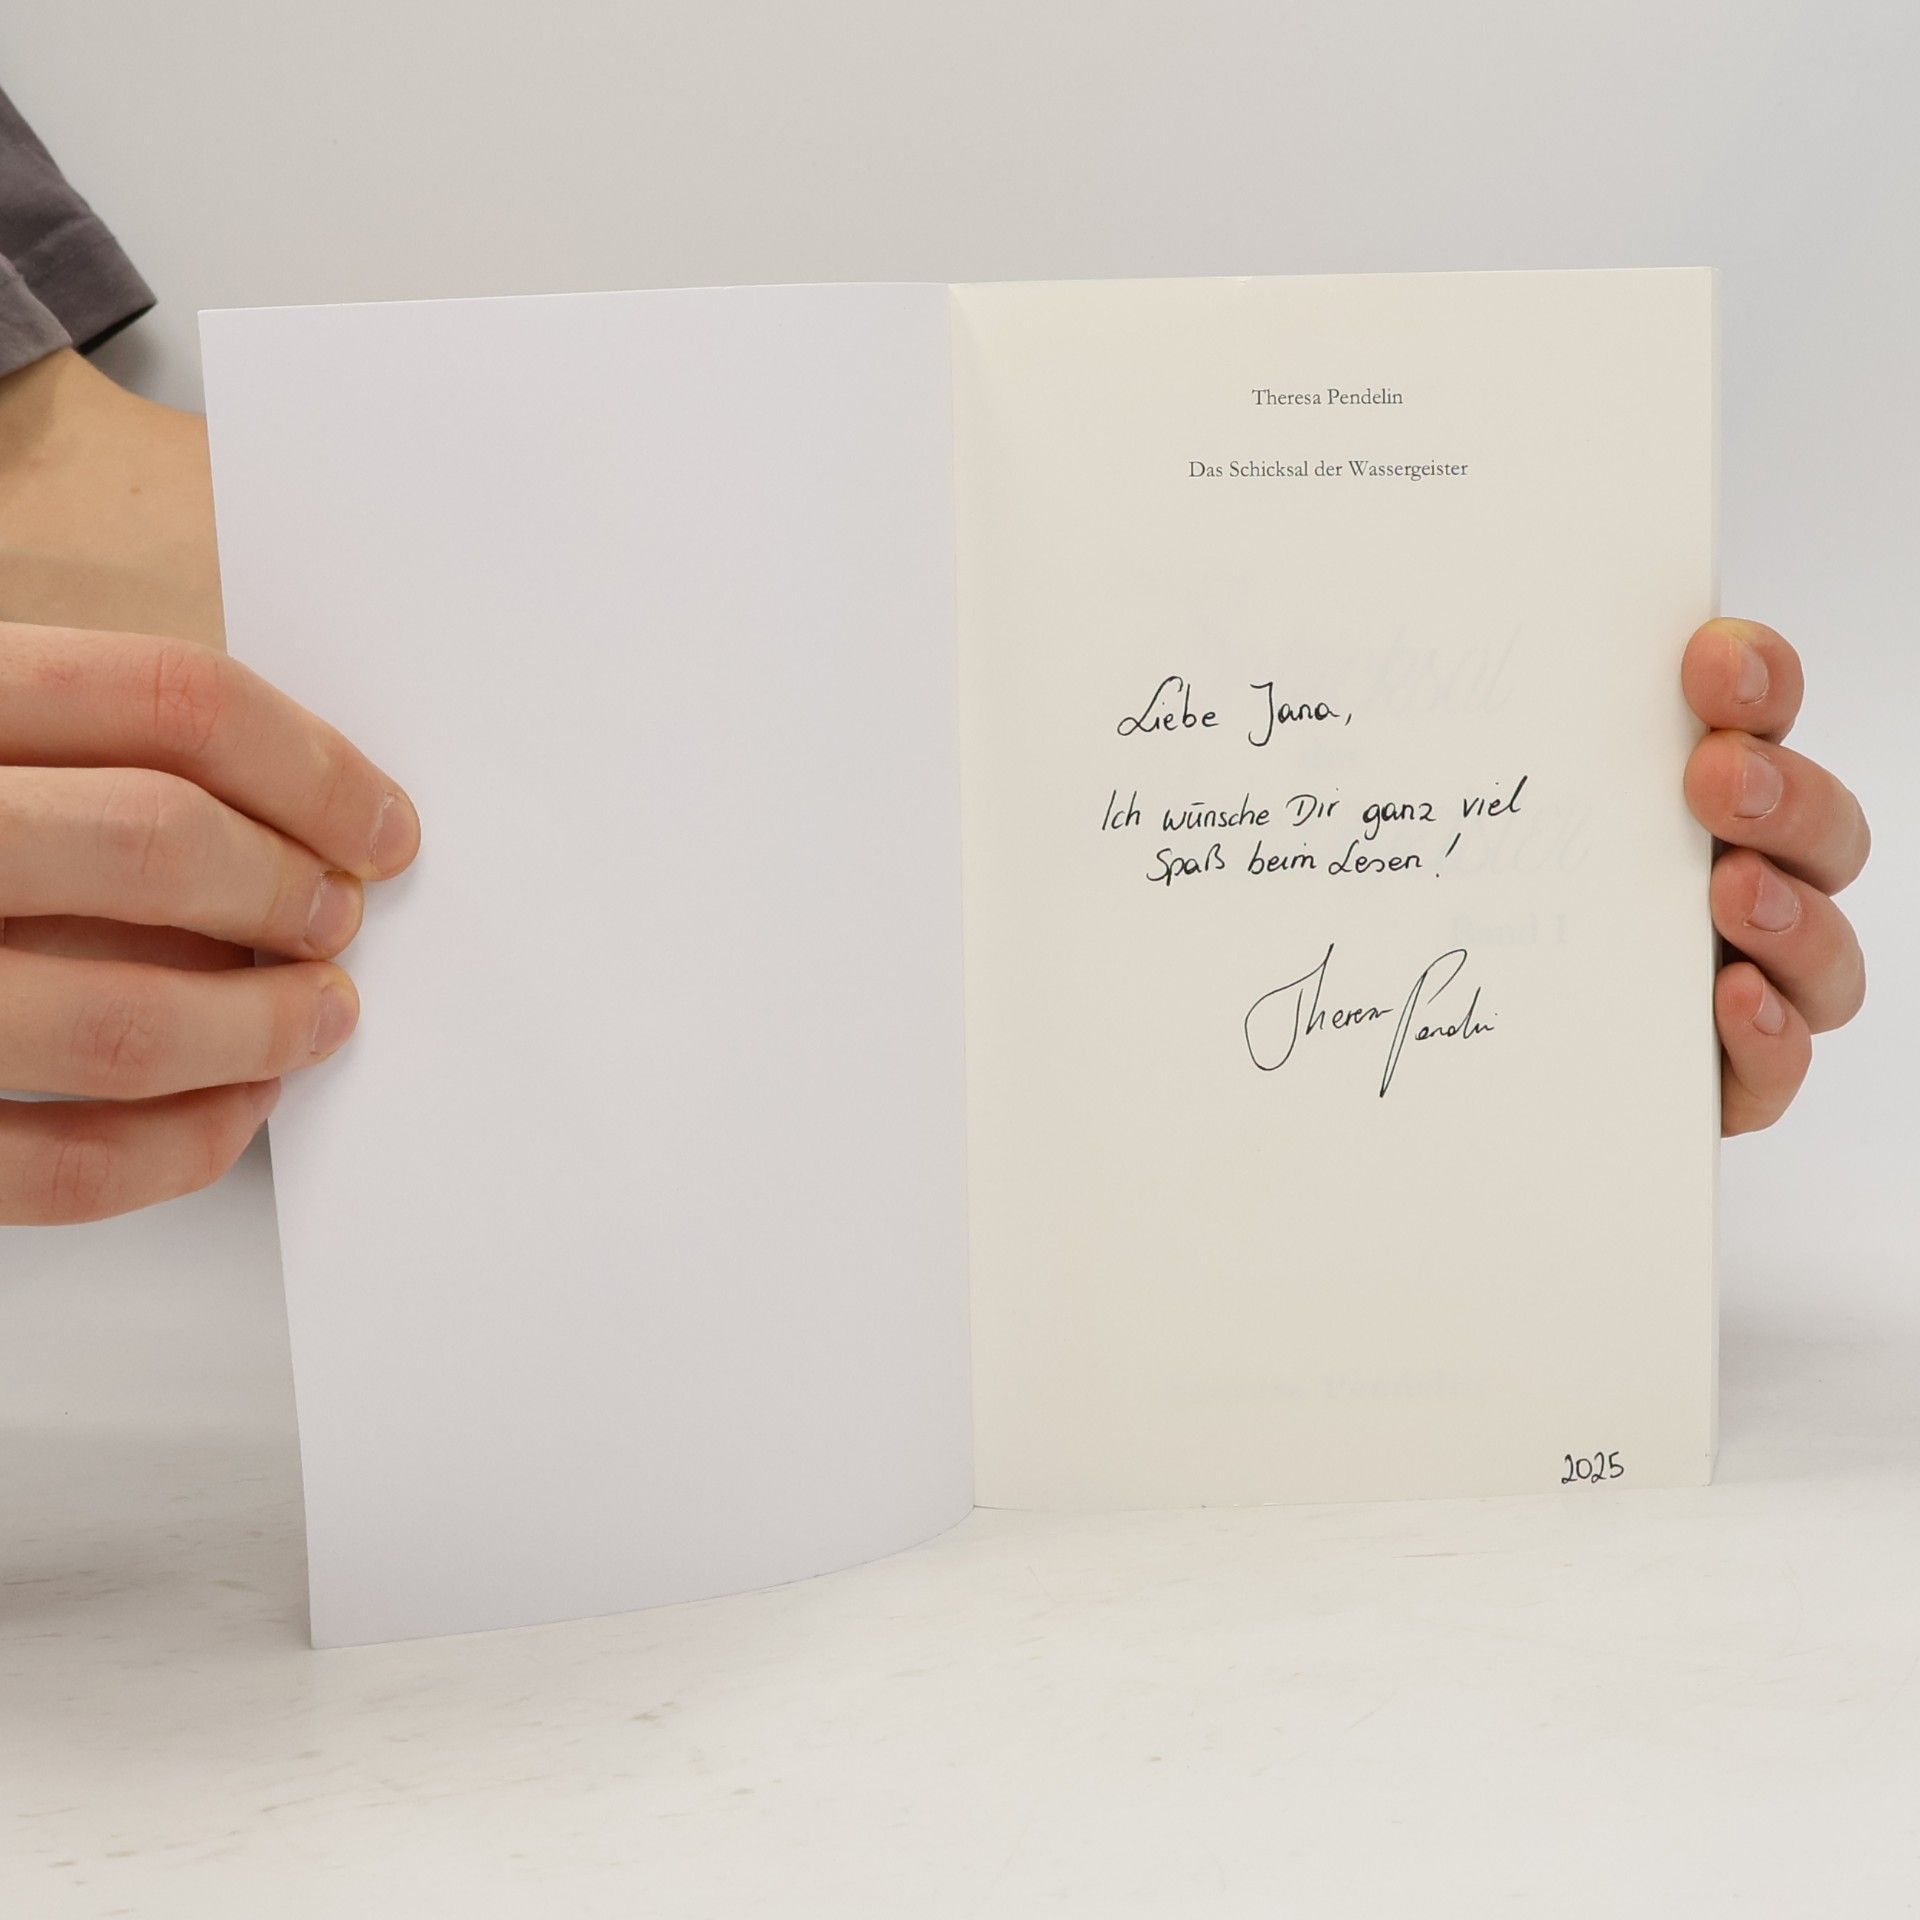 Theresa Pendelin
Das Schicksal der Wassergeister
Liebe Jana,
Ich wünsche Dir ganz viel
Spaß beim Lesen!
Theresa Pendelin
2025